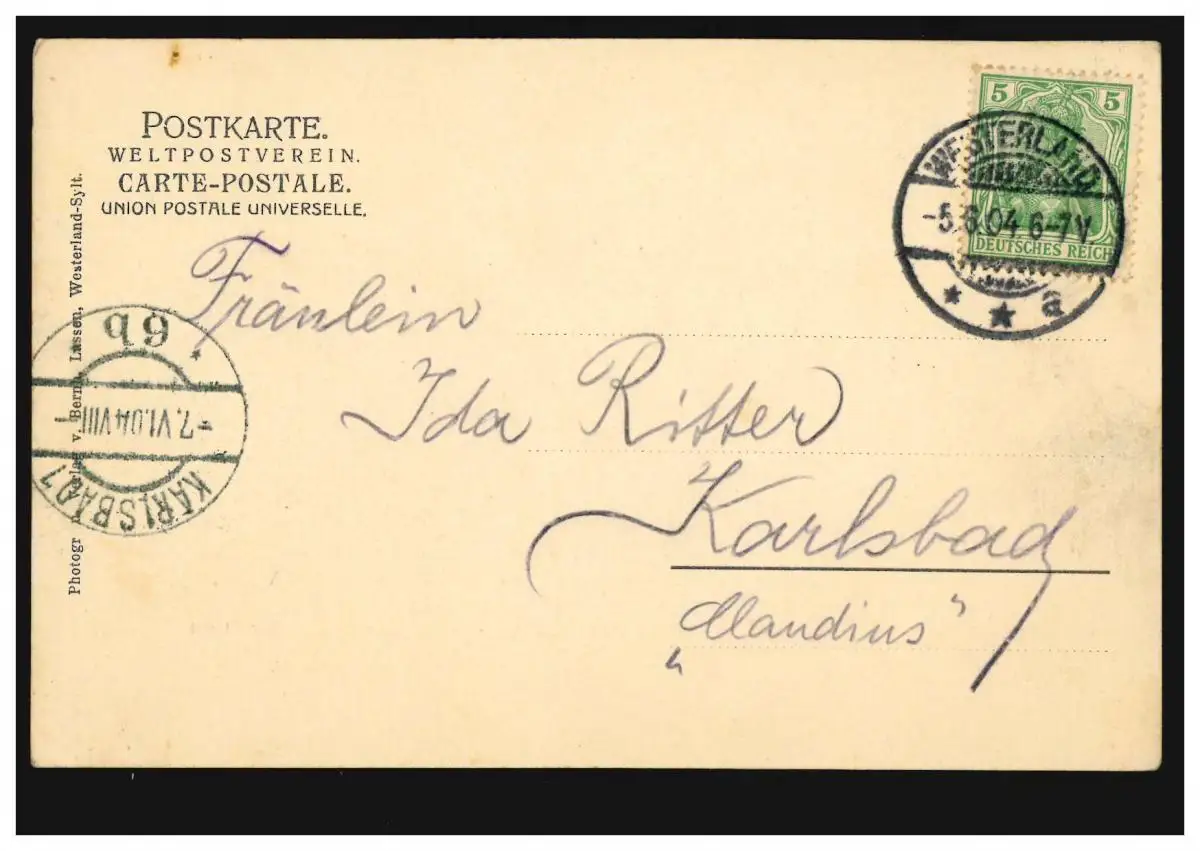 POSTKARTE.
WELTPOSTVEREIN.
CARTE-POSTALE.
UNION POSTALE UNIVERSELLE.
5 5
DEUTSCHES REICH
WESTERLAND
-5.6.04 6-7V.
a
Fräulein
Ida Ritter
Karlsbad
„Mandius"
6b
7.VI.04.VIII
KARLSBAD 1
v. Bernh. Lassen, Westerland-Sylt.
Photogr